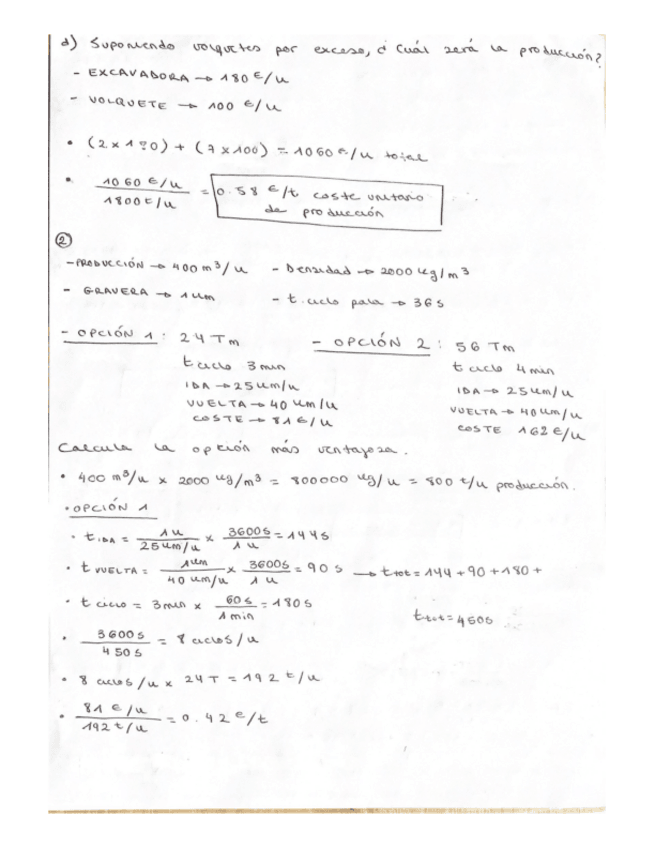 d) Suponiendo volquetes por exceso, ¿ Cuál será la producción?
- EXCAVADORA → 180 €/h
- VOLQUETE → 100 €/h
• (2 x 180) + (7 x 100) = 1060 €/h total
• 1060 €/h / 1800 t/h = 0.58 €/t coste unitario
de producción
②
- PRODUCCIÓN → 400 m³/h - Densidad → 2000 kg/m³
- GRAVERA → 1 km - t. ciclo pala → 36 s
- OPCIÓN 1 : 24 Tm - OPCIÓN 2 : 56 Tm
t ciclo 3 min t ciclo 4 min
IDA → 25 km/h IDA → 25 km/h
VUELTA → 40 km/h VUELTA → 40 km/h
COSTE → 81 €/h COSTE 162 €/h
Calcula la opción más ventajosa.
• 400 m³/h x 2000 kg/m³ = 800000 kg/h = 800 t/h producción.
• OPCIÓN 1
• t IDA = 1 h / 25 km/h x 3600 s / 1 h = 144 s
• t VUELTA = 1 km / 40 km/h x 3600 s / 1 h = 90 s → t tot = 144 + 90 + 180 +
• t ciclo = 3 min x 60 s / 1 min = 180 s t tot = 450 s
• 3600 s / 450 s = 8 ciclos/h
• 8 ciclos/h x 24 T = 192 t/h
• 81 €/h / 192 t/h = 0.42 €/t